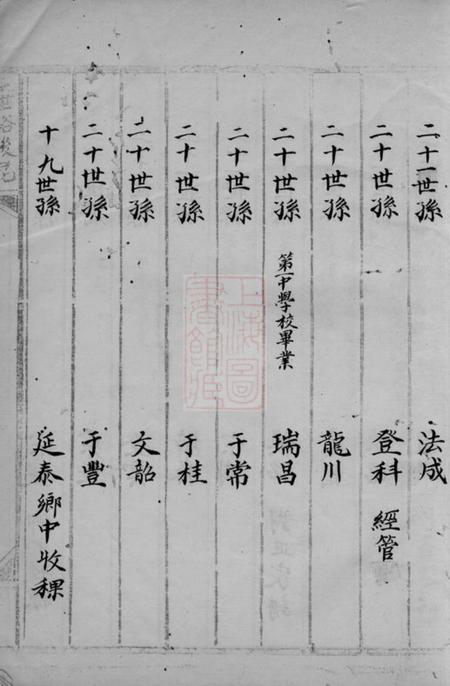 二十一世孫 法成
二十世孫 登科 經管
二十世孫 龍川
二十世孫 第一中學校畢業 瑞昌
二十世孫 于常
二十世孫 于桂
二十世孫 文韶
二十世孫 于豐
十九世孫 延泰鄉中收稞
上海圖
書館藏